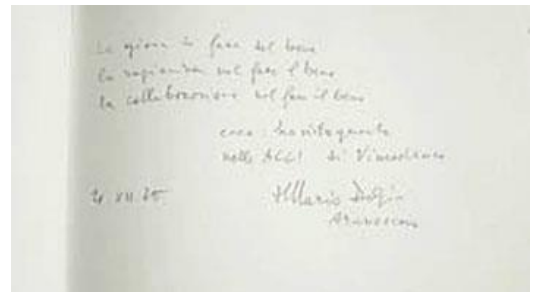 La gioia di fare del bene
la sapienza nel fare il bene
la collaborazione nel fare il bene
ecco:
nelle ACLI di Vimodrone
+ Mario Delpini
Arcivescovo